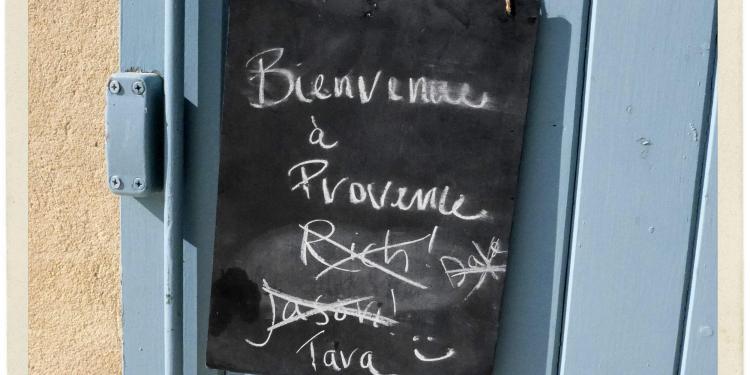 Bienvenue
à
Provence
Rich!
Dave
Jason!
Tara